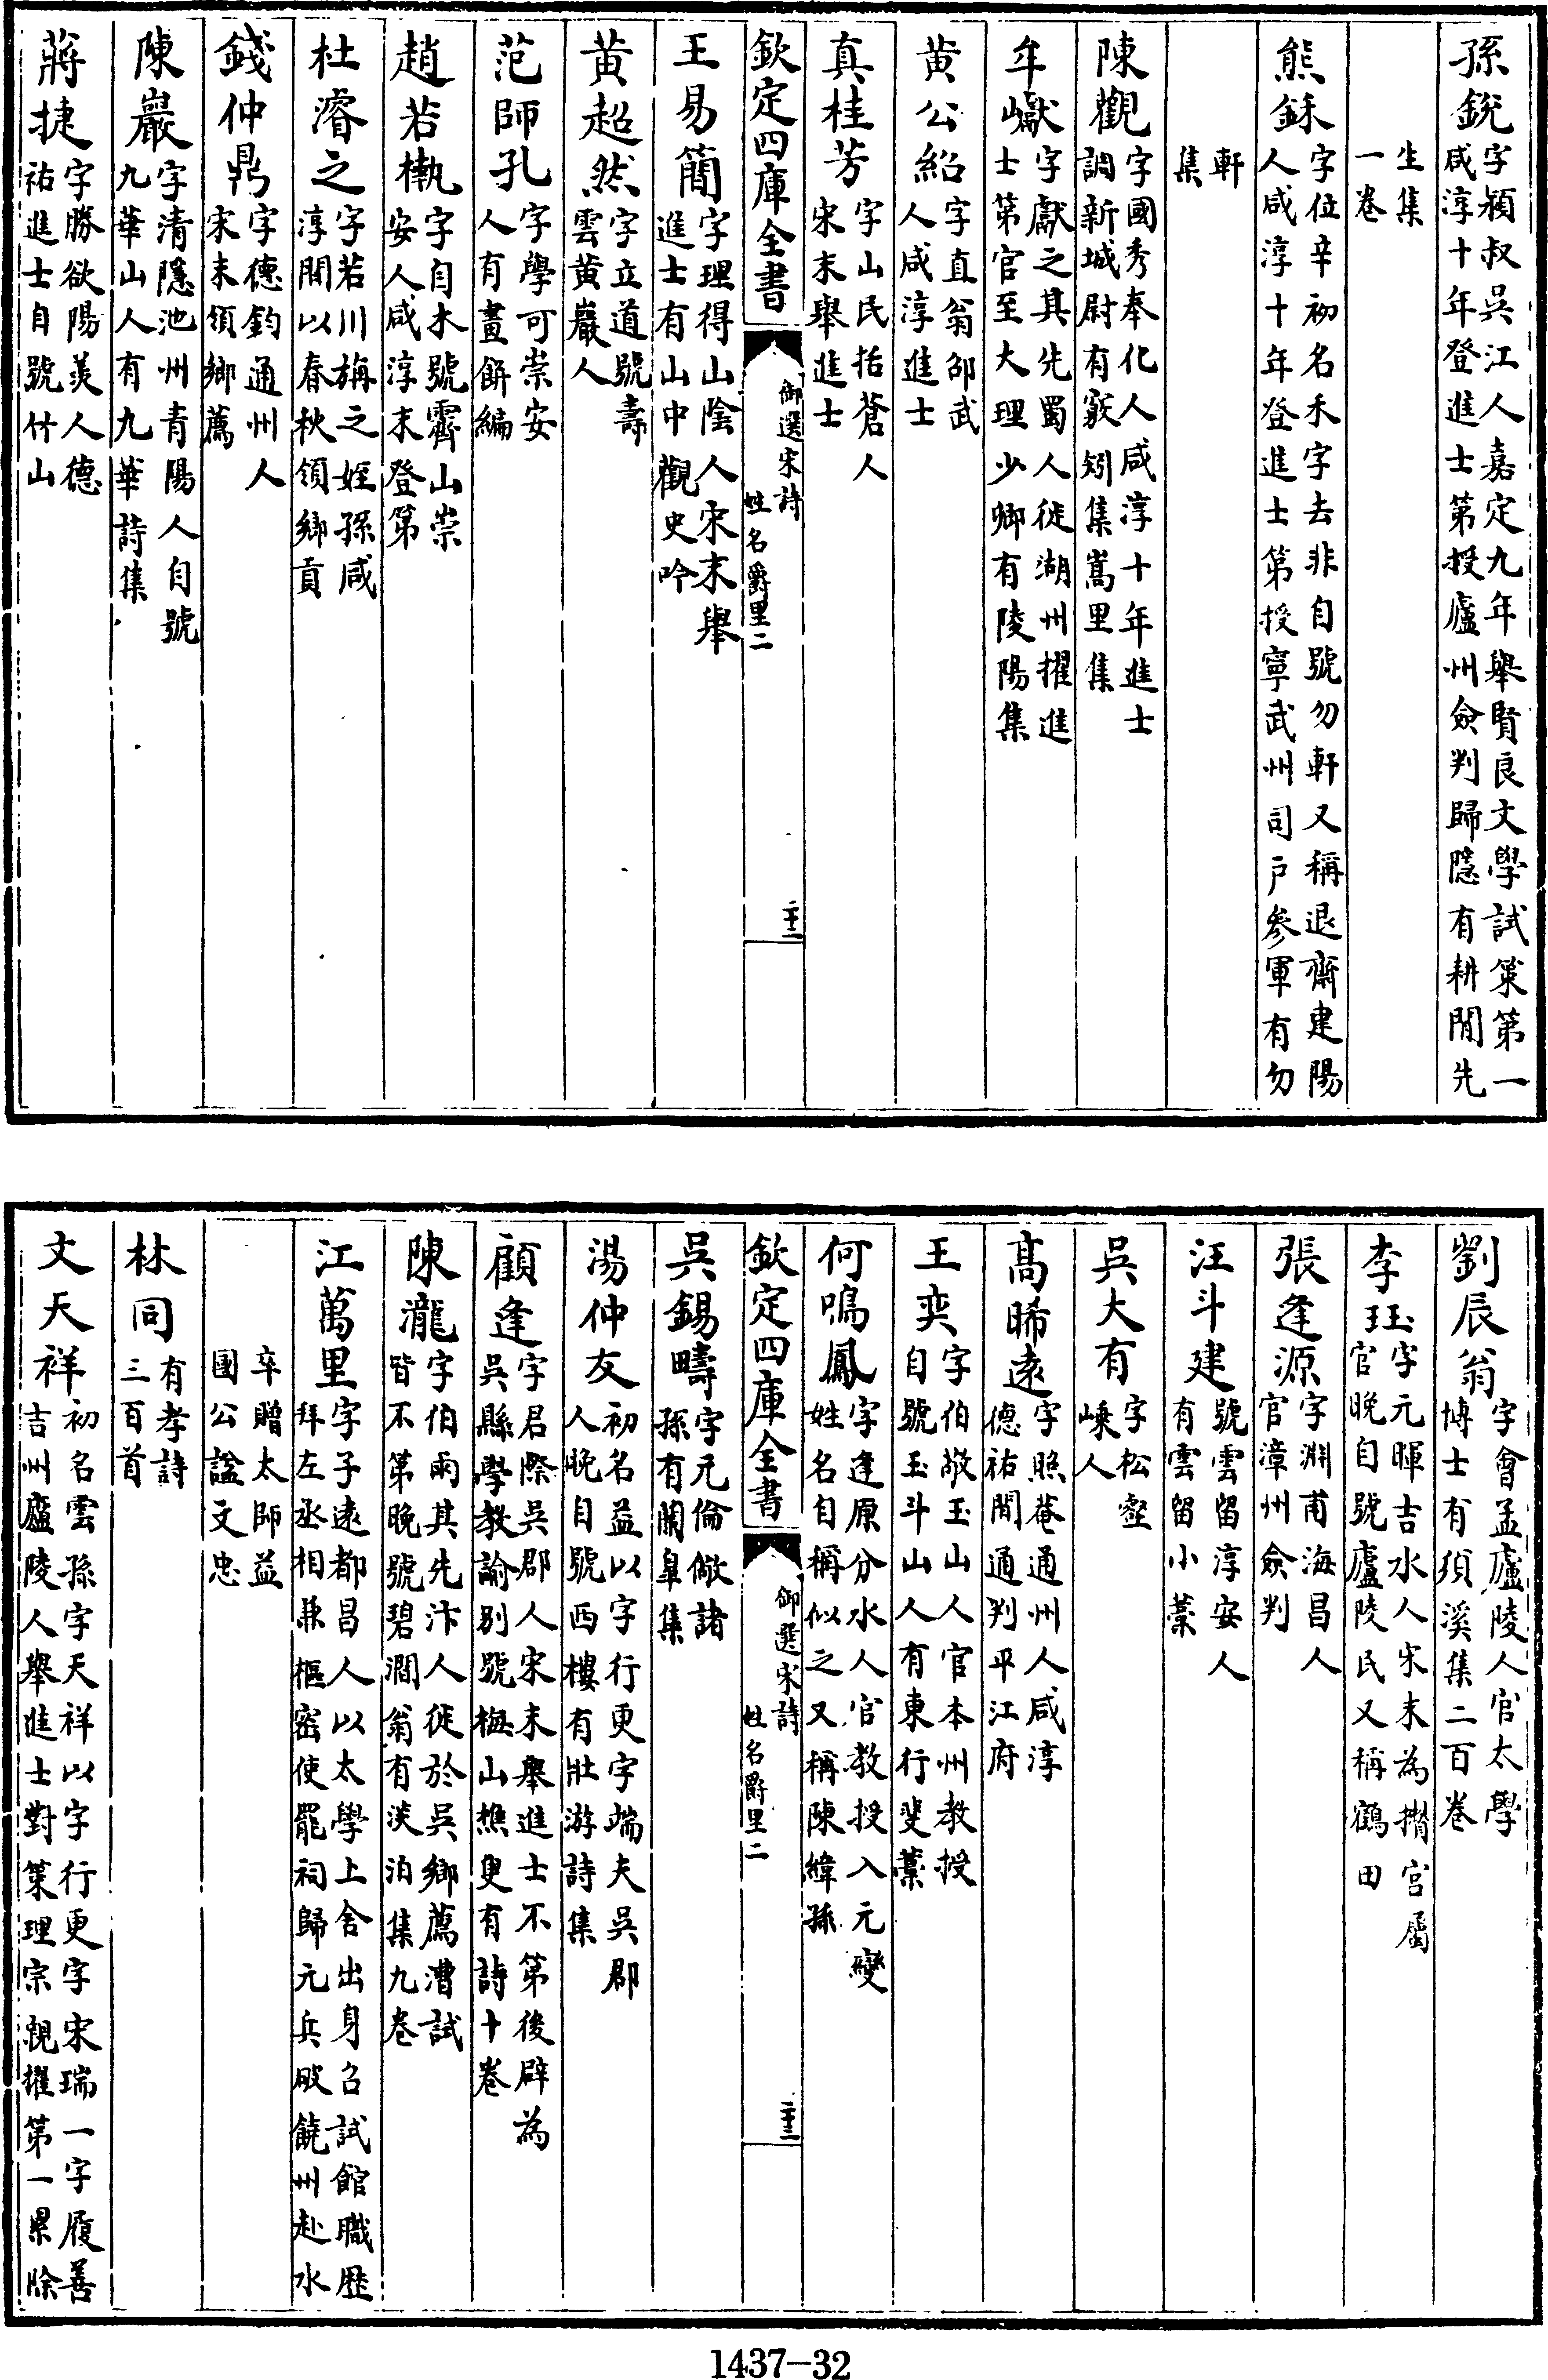 孫銳字穎叔吳江人嘉定九年舉賢良文學試策第一
咸淳十年登進士第授廬州僉判歸隱有耕閒先
生集
一卷
熊鉌字位辛初名禾字去非自號勿軒又稱退齋建陽
人咸淳十年登進士第授寧武州司戶參軍有勿
軒
集
陳觀字國秀奉化人咸淳十年進士
調新城尉有竅矧集嵩里集
牟巘字獻之其先蜀人徙湖州擢進
士第官至大理少卿有陵陽集
黃公紹字直翁邵武
人咸淳進士
真桂芳字山民括蒼人
宋末舉進士
欽定四庫全書
御選宋詩
姓名爵里二
王易簡字理得山陰人宋末舉
進士有山中觀史吟
黃超然字立道號壽
雲黃巖人
范師孔字學可崇安
人有畫餅編
趙若槸字自木號霽山崇
安人咸淳末登第
杜濬之字若川旃之姪孫咸
淳間以春秋領鄉貢
錢仲鼎字德鈞通州人
宋末領鄉薦
陳巖字清隱池州青陽人自號
九華山人有九華詩集
蔣捷字勝欲陽羨人德
祐進士自號竹山
劉辰翁字會孟廬陵人官太學
博士有須溪集二百卷
李珏字元暉吉水人宋末為攢宮屬
官晚自號廬陵民又稱鶴田
張逢源字淵甫海昌人
官漳州僉判
汪斗建號雲留淳安人
有雲留小藁
吳大有字松壑
嵊人
高晞遠字照菴通州人咸淳
德祐間通判平江府
王奕字伯敬玉山人官本州教授
自號玉斗山人有東行斐藁
何鳴鳳字逢原分水人官教授入元變
姓名自稱似之又稱陳緯孫
欽定四庫全書
御選宋詩
姓名爵里二
吳錫疇字元倫儆諸
孫有蘭皐集
湯仲友初名益以字行更字端夫吳郡
人晚自號西樓有壯游詩集
顧逢字君際吳郡人宋末舉進士不第後辟為
吳縣學教諭別號梅山樵叟有詩十卷
陳瀧字伯雨其先汴人徙於吳鄉薦漕試
皆不第晚號碧澗翁有淡泊集九卷
江萬里字子遠都昌人以太學上舍出身召試館職歷
拜左丞相兼樞密使罷祠歸元兵破饒州赴水
卒贈太師益
國公諡文忠
林同有孝詩
三百首
文天祥初名雲孫字天祥以字行更字宋瑞一字履善
吉州廬陵人舉進士對策理宗親擢第一累除
1437-32